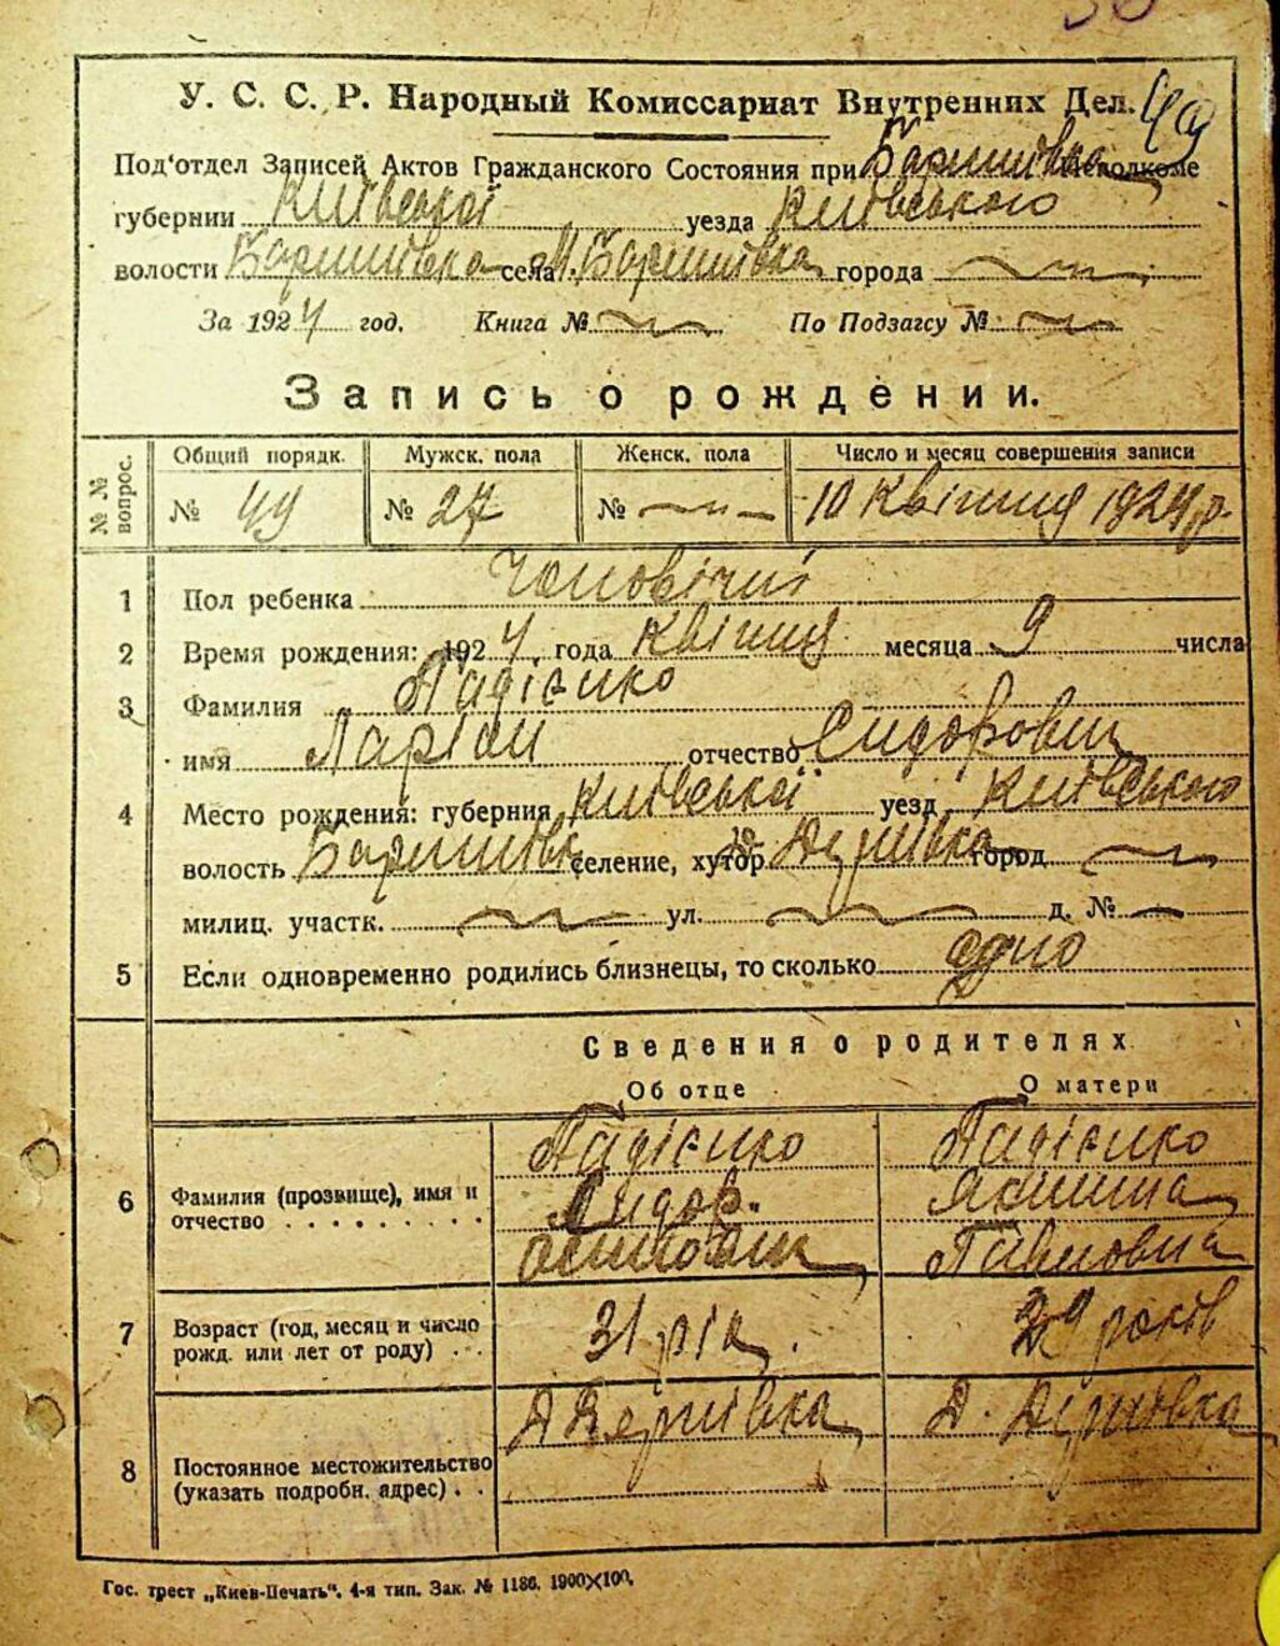 У. С. С. Р. Народный Комиссариат Внутренних Дел. 49
Под'отдел Записей Актов Гражданского Состояния при Баришівка Исполкоме
губернии Київської уезда Київського
волости Баришівка села М. Баришівка города
За 1924 год. Книга № По Подзагсу №
Запись о рождении.
№ № вопрос. Общий порядк. Мужск. пола Женск. пола Число и месяц совершения записи
№ 49 № 27 № 10 Квітня 1924 р.
1 Пол ребенка Чоловічий
2 Время рождения: 1924 года Квітня месяца 9 числа
3 Фамилия Падієнко
имя Ларіон отчество Сидорович
4 Место рождения: губерния Київської уезд Київського
волость Баришівка селение, хутор город
милиц. участк. ул. д. №
5 Если одновременно родились близнецы, то сколько одно
Сведения о родителях
Об отце О матери
Падієнко Падієнко
6 Фамилия (прозвище), имя и Сидор
отчество Осипович Павловна
7 Возраст (год, месяц и число 31 рік. 29 років
рожд. или лет от роду)
Д. Д.
8 Постоянное местожительство
(указать подробн. адрес)
Гос. трест „Киев-Печать“. 4-я тип. Зак. № 1186. 1900×100.